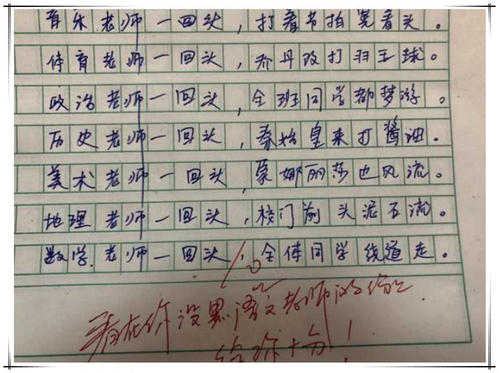 音乐老师一回头，打着节拍晃着头。
体育老师一回头，乔丹改打羽毛球。
政治老师一回头，全班同学都梦游。
历史老师一回头，秦始皇来打酱油。
美术老师一回头，蒙娜丽莎也风流。
地理老师一回头，校门前头泥石流。
数学老师一回头，全体同学绕道走。
10
看在你没黑语文老师的份上
给你十分！